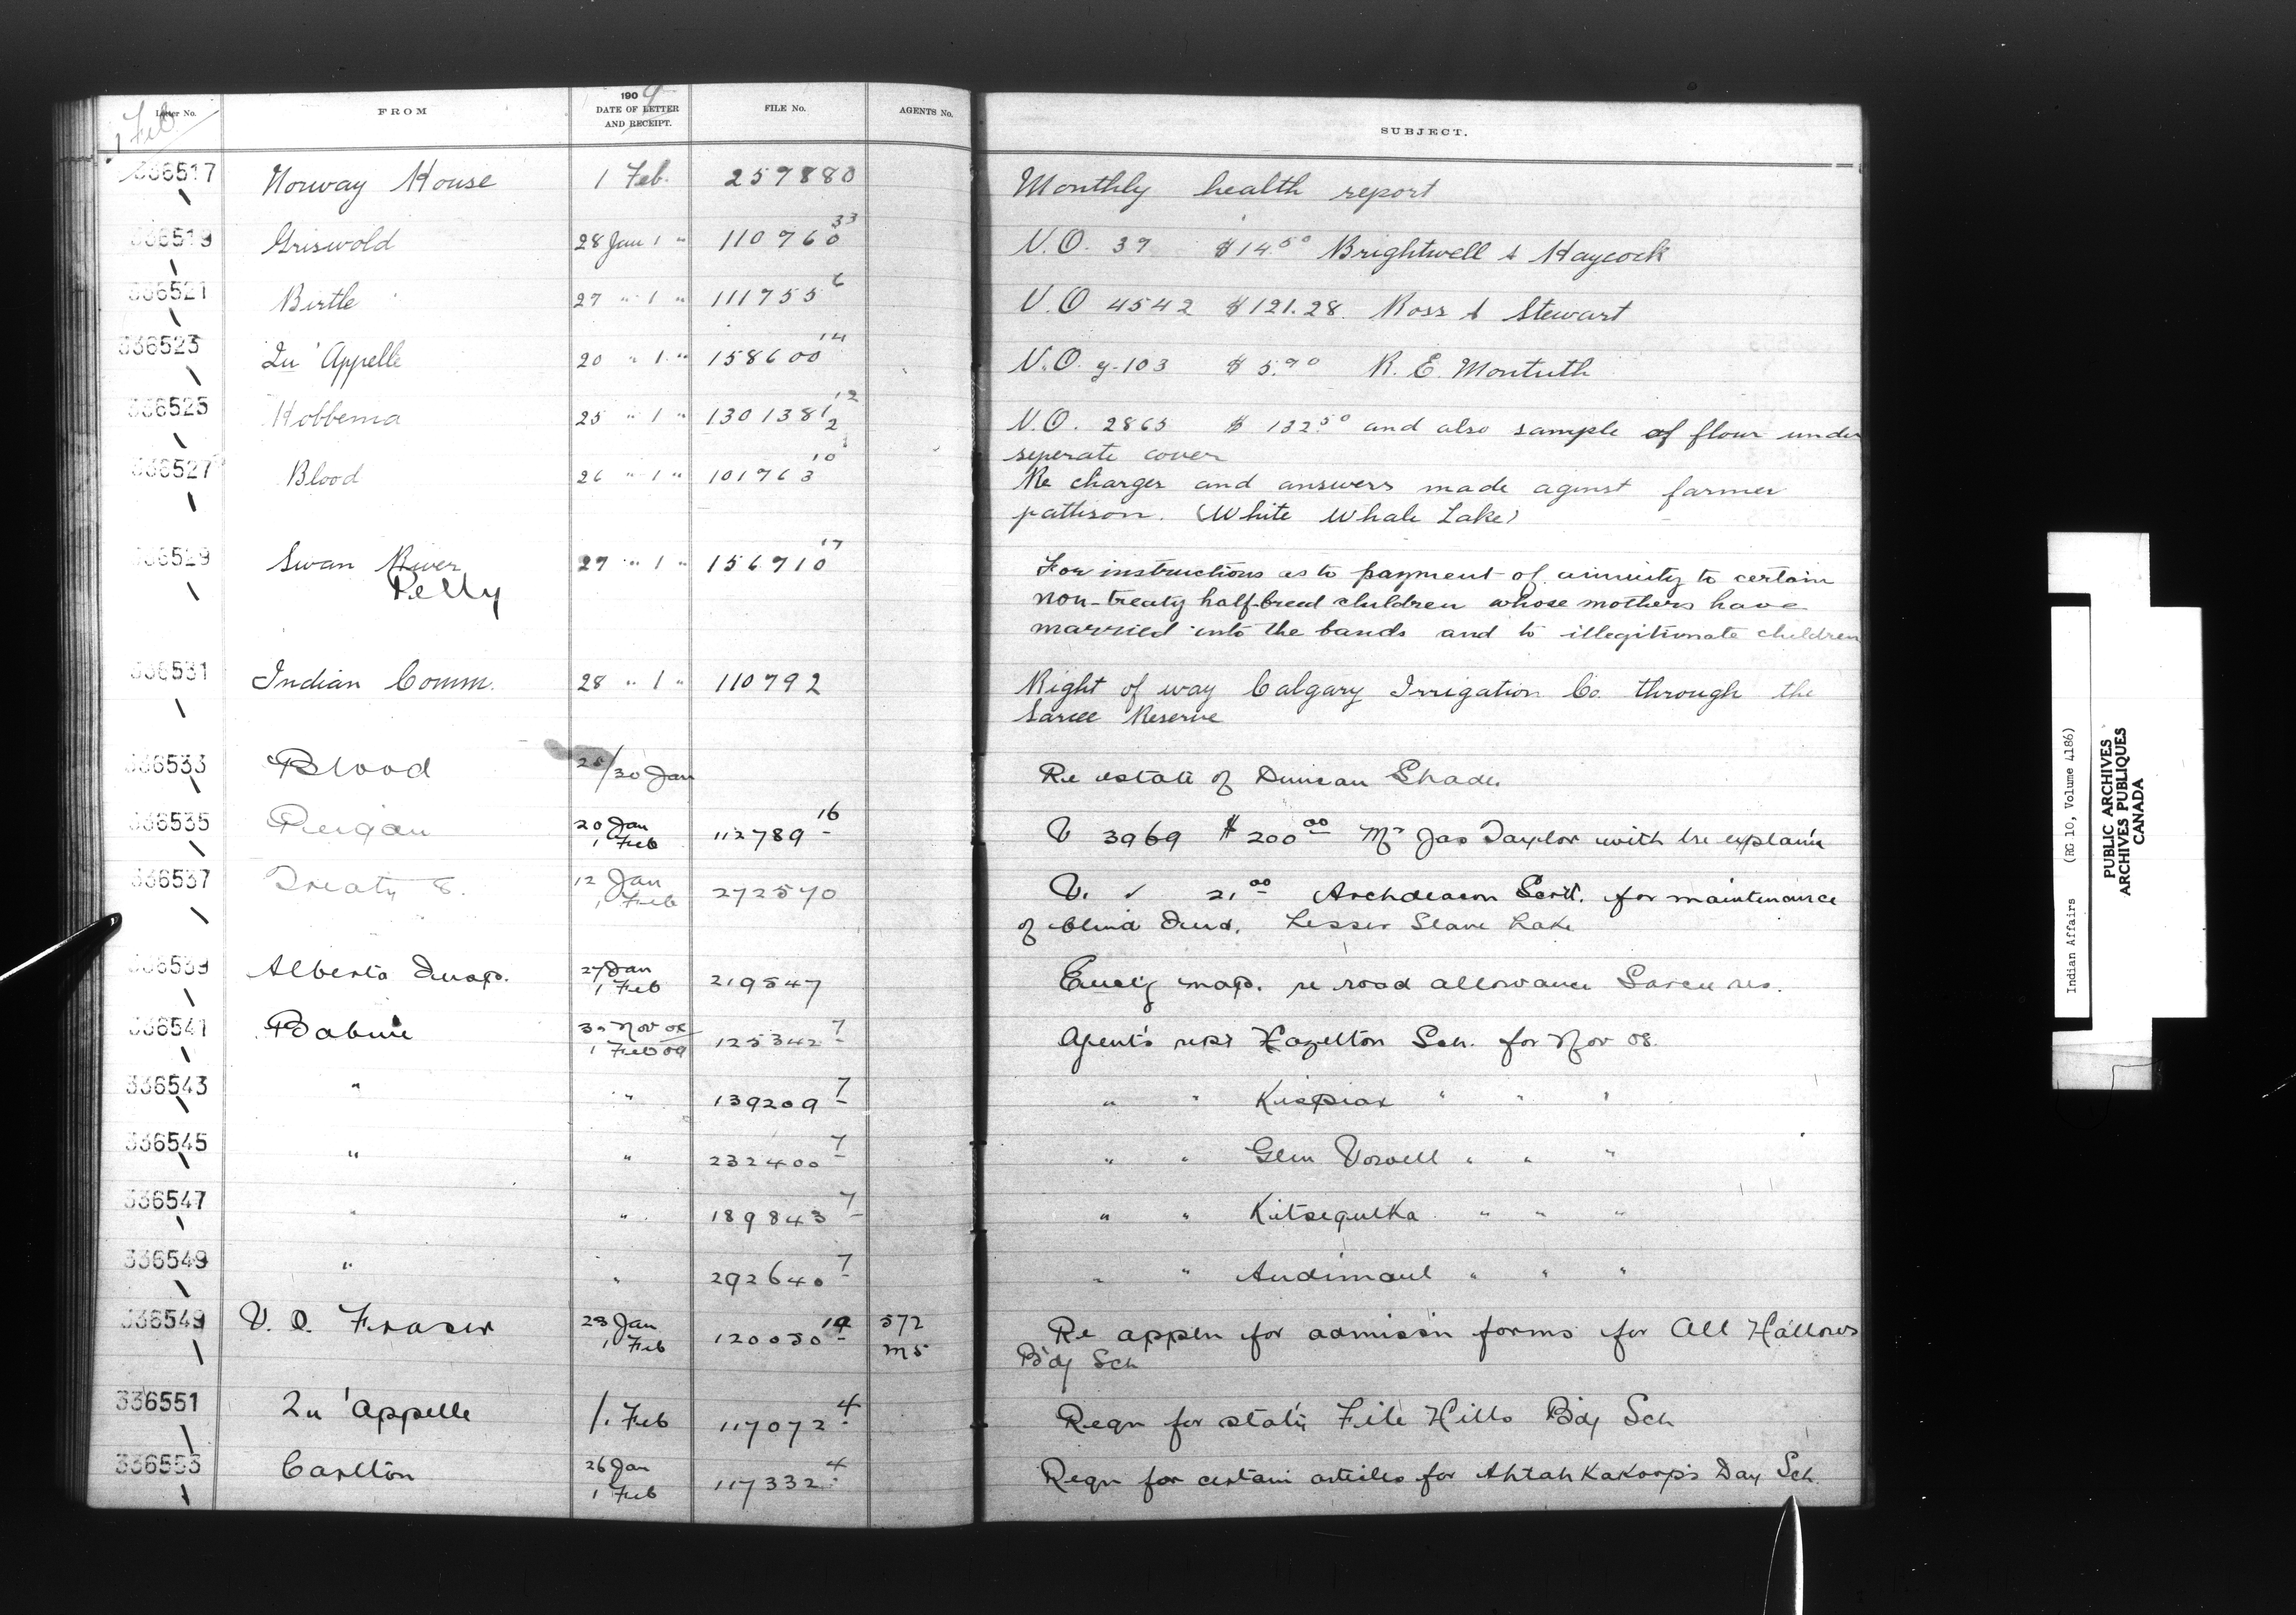 1 Feb
Letter No. FROM 1909 DATE OF LETTER AND RECEIPT. FILE No. AGENTS No. SUBJECT.
336517 Norway House 1 Feb. 257880 Monthly health report
336519 Griswold 28 Jan 1 " 110760 33 V.O. 37 $14.50 Brightwell & Haycock
336521 Birtle 27 " 1 " 111755 6 V.O 4542 $121.28. Ross & Stewart
336523 Qu'Appelle 20 " 1 " 158600 14 V.O. y-103 $5.90 R. E. Montuth
336525 Hobbema 25 " 1 " 130138 1/2 12 V.O. 2865 $132.50 and also sample of flour under
seperate cover
336527 Blood 26 " 1 " 101763 10 Re charges and answers made aginst farmer
pattison. (White Whale Lake)
336529 Swan River 27 " 1 " 156710 17 For instructions as to payment of annuity to certain
Pelly non-treaty half-breed children whose mothers have
married into the bands and to illegitimate children
336531 Indian Comm. 28 " 1 " 110792 Right of way Calgary Irrigation Co. through the
Sarcee Reserve
336533 Blood /30 Jan Re estate of Duncan Shade.
336535 Peigan 20 Jan 1 Feb 112789 16 V 3969 $200 00 Mr Jas Taylor with explain
336537 Treaty 8. 12 Jan 1 Feb 272570 V. ✓ 21.00 Archdeacon Scott. for maintenance
of blind Ind. Lesser Slave Lake
336539 Alberta Insp. 27 Jan 1 Feb 219547 Encl'g map. re road allowance Sarcee res.
336541 Babine 30 Nov 08 1 Feb 09 125342 7 Agent's rept Hazelton Sch. for Nov 08.
336543 " " 139209 7 " " Kispiax " " "
336545 " " 232400 7 " " Glen Vowell " " "
336547 " " 189843 7 " " Kitsegulka " " "
336549 " " 292640 7 " " Andimaul " " "
336549 V. O. Fraser Jan 1 Feb 120050 572 M5 Re appln for admissn forms for All Hallows
Bdg Sch
336551 Qu'appelle 1. Feb 117072 4 Reqn for stat'y File Hills Bdg Sch
336553 Carlton 26 Jan 1 Feb 117332 4 Reqn for certain articles for Ahtahkakoops Day Sch.
Indian Affairs (RG 10, Volume 4186)
PUBLIC ARCHIVES
ARCHIVES PUBLIQUES
CANADA